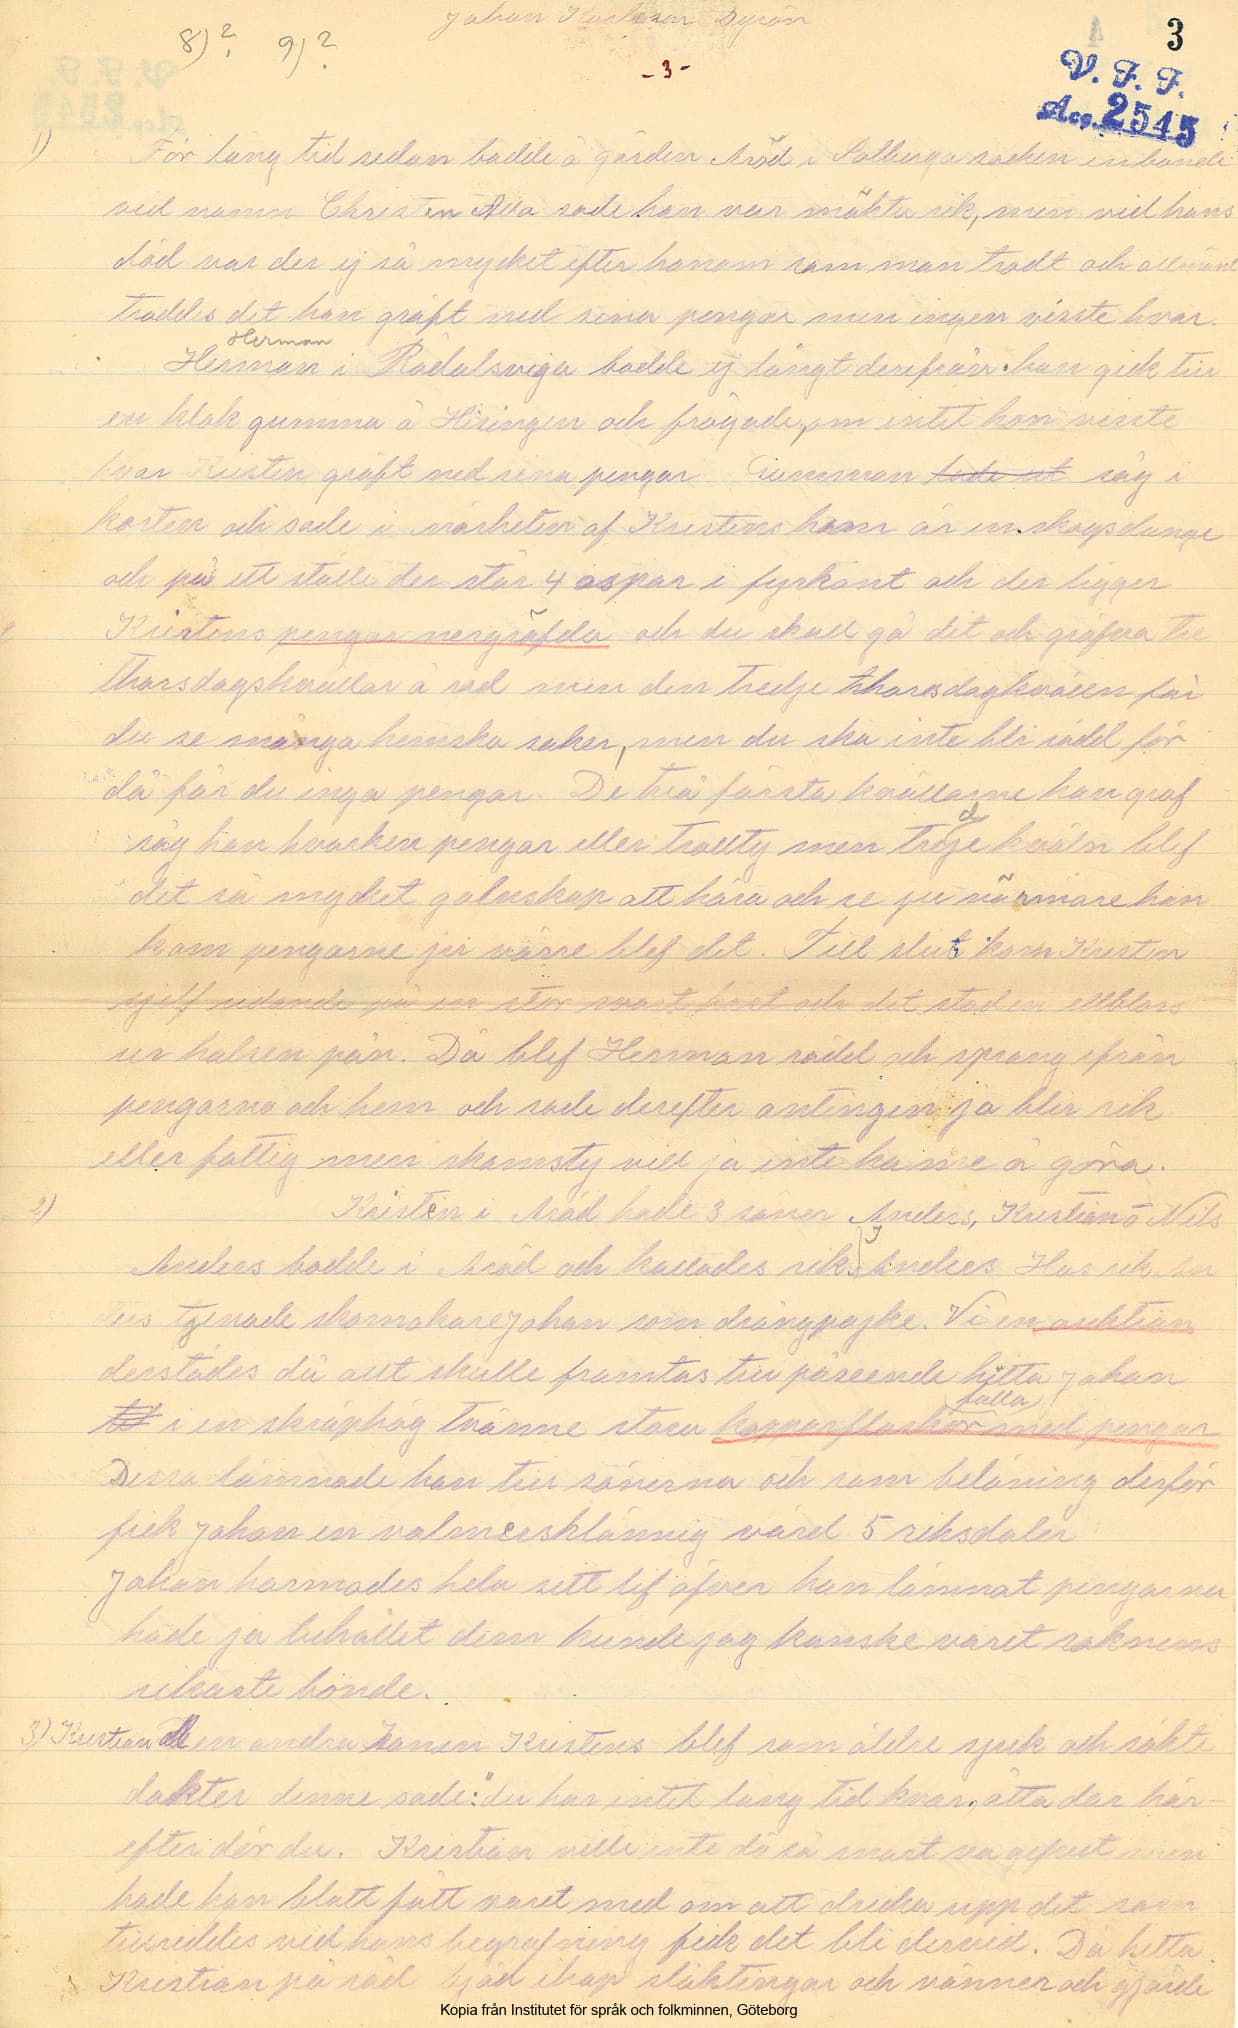 Johan Karlsson Dyrön
8)? 9)?
3
- 3 -
V. F. F.
Acc. 2545
1) För lång tid sedan bodde å gården Aröd i Solberga socken en bonde
vid namn Christen Alla sade han var mäkta rik, men vid hans
död var der ej så mycket efter honom som man trodt och allmänt
troddes det han gräft ned sina pengar men ingen visste hvar.
Herman
Herman i Rödalsviga bodde ej långt derifrån. han gick till
en klok gumma å Hisingen och frågade, om intet hon visste
hvar Kristen gräft ned sina pengar Gumman såg i
korten och sade i närheten af Kristens hem är en skogsdunge
och på ett ställe der står 4 aspar i fyrkant och der ligger
Kristens pengar nergräfda och du skall gå dit och gräfva tre
thorsdagskvällar å rad men den tredje thorsdagkvällen får
du se många hemska saker, men du ska inte bli rädd för
då får du inga pengar. De två första kvällarne han graf
såg han hvarken pengar eller trollty men tredje kväln blef
det så mycket galenskap att höra och se ju närmare han
kom pengarne jir värre blef det. Till slut kom Kristen
sjelf ridande på en stor svart häst och det stod en eldbloss
ur halsen på'n. Då blef Herman rädd och sprang ifrån
pengarna och hem och sade derefter antingen ja blir rik
eller fattig men skamsty vill ja inte ha me å göra.
2) Kristen i Aröd hade 3 söner Anders, Kristian o Nils
Anders bodde i Aröd och kallades rik Anders Hos rik
tjenade skomakare Johan som drängpojke. Vi en auktion
derstädes då allt skulle framtas till påseende hitta Johan
fulla
i en skräphög tvänne stora kopparflaskor med pengar
Dessa lämnade han till sönerna och som belöning derför
fick Johan en valmersklännig värd 5 riksdaler
Johan harmades hela sitt lif öfver han lämnat pengarna
hade ja behållet dem kunde jag kanske varet soknens
rikaste bonde.
3) Kristian den andra sonen Kristens blef som äldre sjuk och sökte
dokter denne sade: "du har intet lång tid kvar, åtta dar här-
efter dör du. Kristian ville inte dö så snart men
hade han blott fått varet med om att dricka upp det som
tillreddes vid hans begrafning fick det bli dervid. Då hitta
Kristian på råd bjöd ihop släktingar och vänner och gjorde
Kopia från Institutet för språk och folkminnen, Göteborg